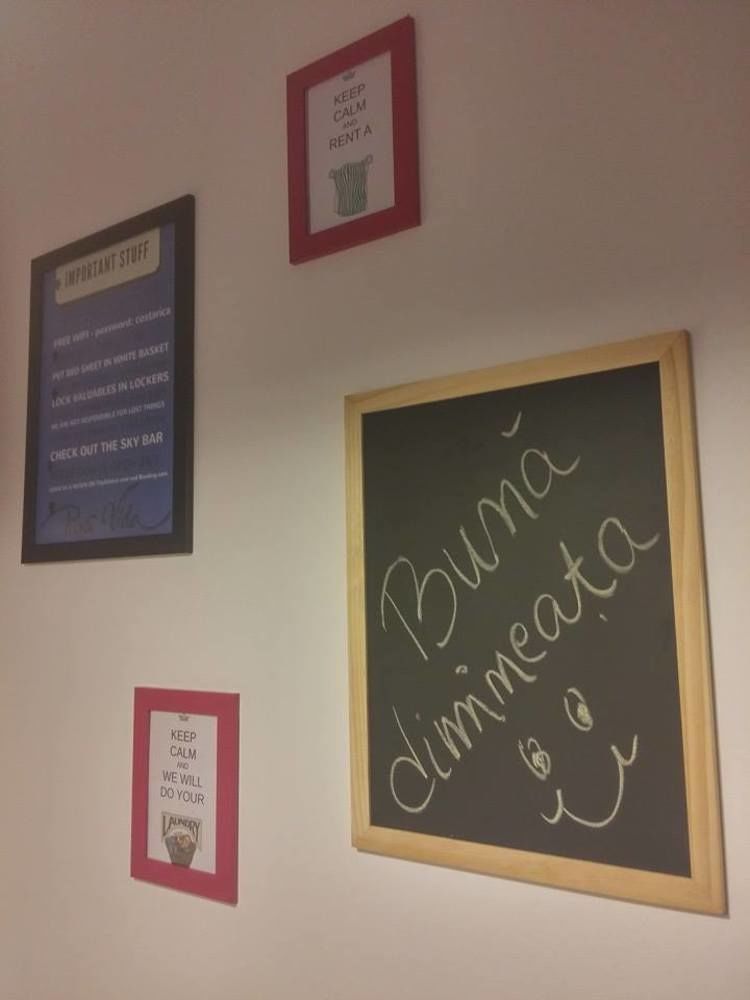 KEEP
CALM
AND
RENT A
IMPORTANT STUFF
FREE WIFI - password: costarica
PUT BED SHEET IN WHITE BASKET
LOCK VALUABLES IN LOCKERS
WE ARE NOT RESPONSIBLE FOR LOST THINGS
CHECK OUT THE SKY BAR
Pura Vida
Bună
dimineața
KEEP
CALM
AND
WE WILL
DO YOUR
LAUNDRY